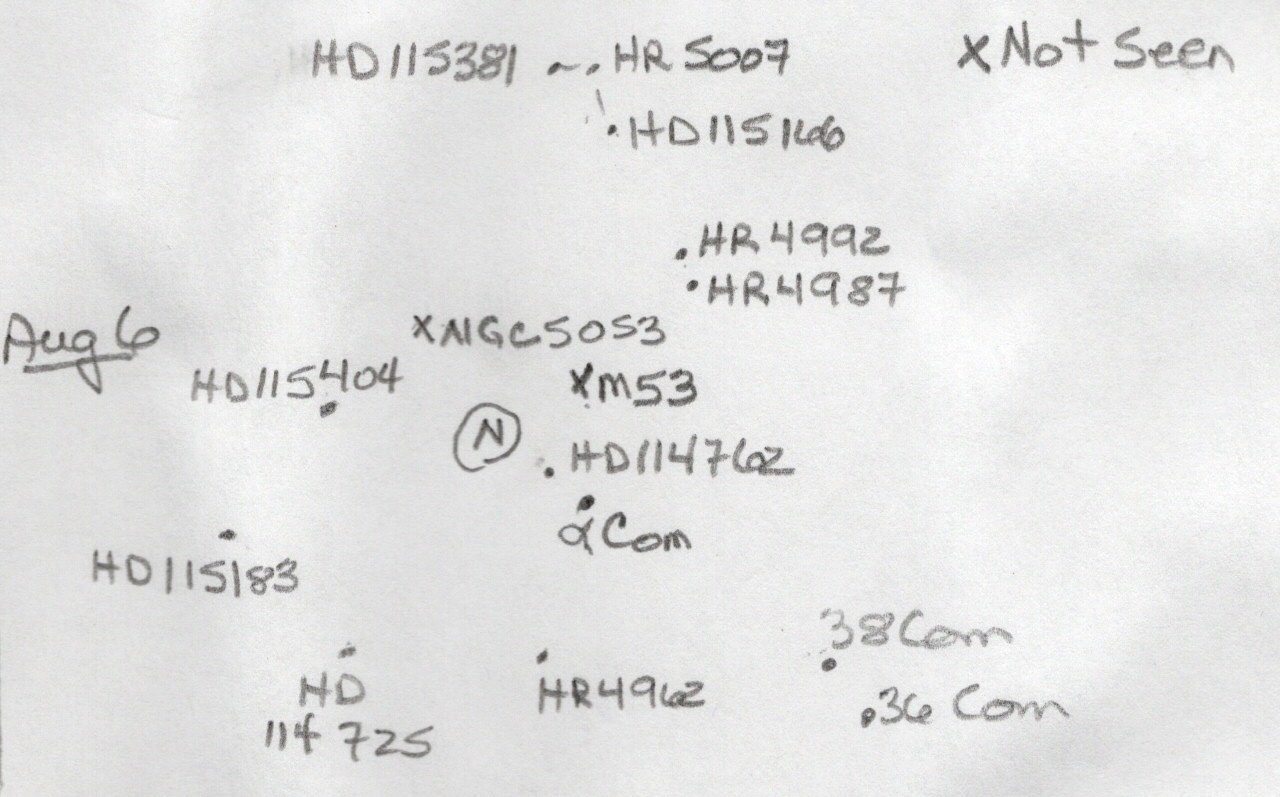 HD115381
HR 5007
x Not Seen
HD115166
HR 4992
HR4987
x NGC5053
Aug 6
HD115404
x M53
N
HD114762
α Com
HD115183
38 Com
HD
114 725
HR4962
36 Com